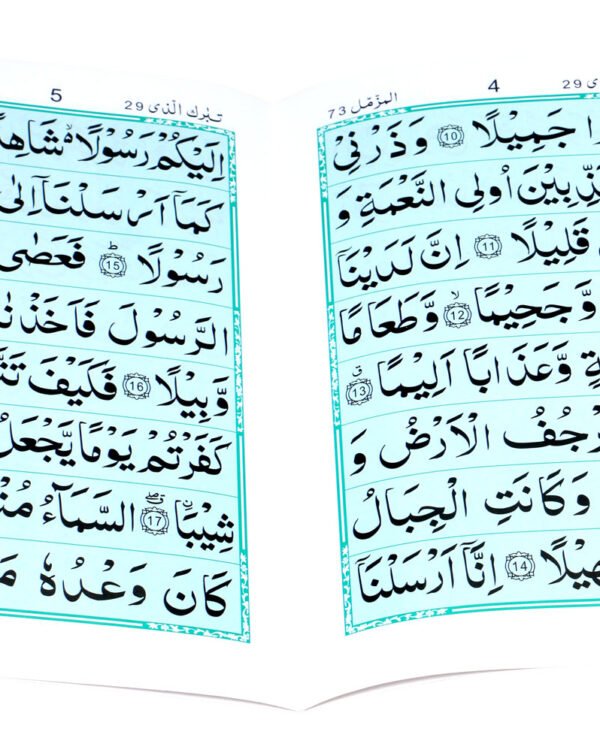 29
4
المزّمّل 73
جَمِيْلًا ۝10 وَذَرْنِىْ
بِيْنَ اُولِى النَّعْمَةِ وَ
قَلِيْلًا ۝11 اِنَّ لَدَيْنَاۤ
وَّجَحِيْمًا ۝12ۙ وَّطَعَامًا
ةٍ وَّعَذَابًا اَلِيْمًا ۝13ۗ
رْجُفُ الْاَرْضُ وَ
وَكَانَتِ الْجِبَالُ
هِيْلًا ۝14 اِنَّاۤ اَرْسَلْنَاۤ
تبٰرك الّذى 29
5
اِلَيْكُمْ رَسُوْلًا ۙ۬ شَاهِدً
كَمَاۤ اَرْسَلْنَاۤ اِلٰى
رَسُوْلًا ۝15ؕ فَعَصٰى
الرَّسُوْلَ فَاَخَذْنٰ
وَّبِيْلًا ۝16 فَكَيْفَ تَتَّ
كَفَرْتُمْ يَوْمًا يَّجْعَلُ
شِيْبَا ۝17 السَّمَآءُ مُنْ
كَانَ وَعْدُهٗ مَ